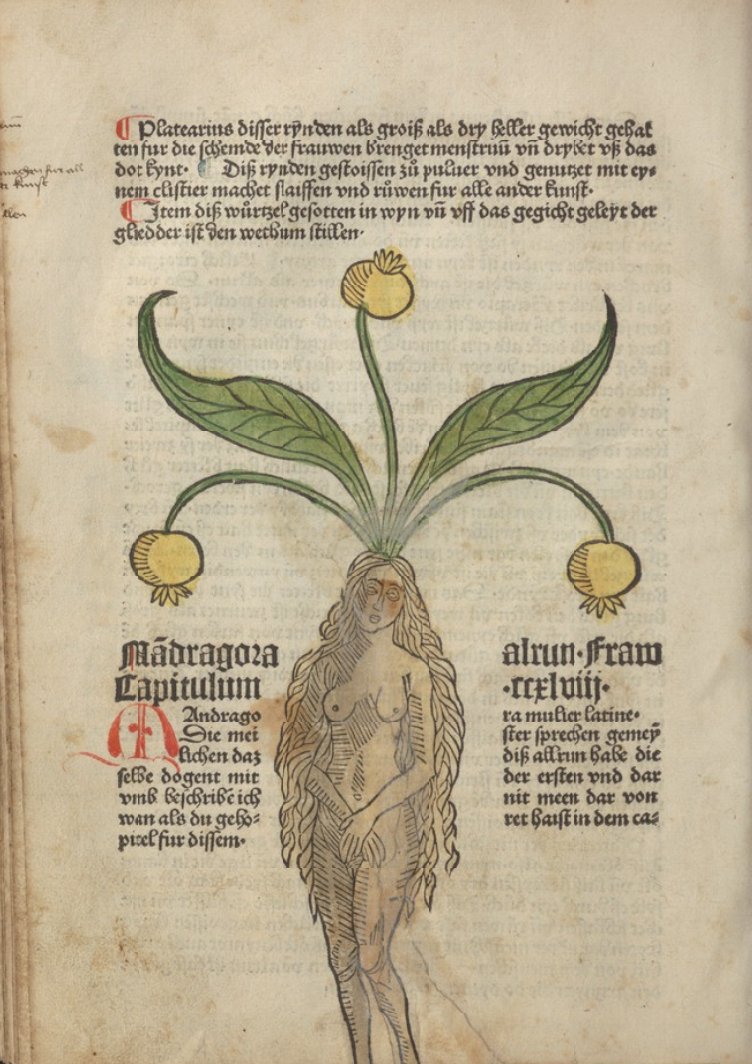 Platearius disser rynden als groiß als dry heller gewicht gehal
ten fur die schemde der frauwen brenget menstruū vn̄ drybet vß das
dot kynt· Diß rynden gestoissen zů puluer vnd genutzet mit ey-
nem clistier machet slaiffen vnd růwen fur alle ander kunst·
Item diß wůrtzel gesotten in wyn vn̄ vff das gegicht geleyt der
gliedder ist den wethum stillen·
Mādragora alrun·Fraw
Capitulum ·ccxlviij·
MAndrago ra mulier latine·
Die mei ster sprechen gemeỹ
lichen daz diß allrun habe die
selbe dogent mit der ersten vnd dar
vmb beschribe ich nit meen dar von
wan als du geho- ret haist in dem ca-
pitel fur dissem·